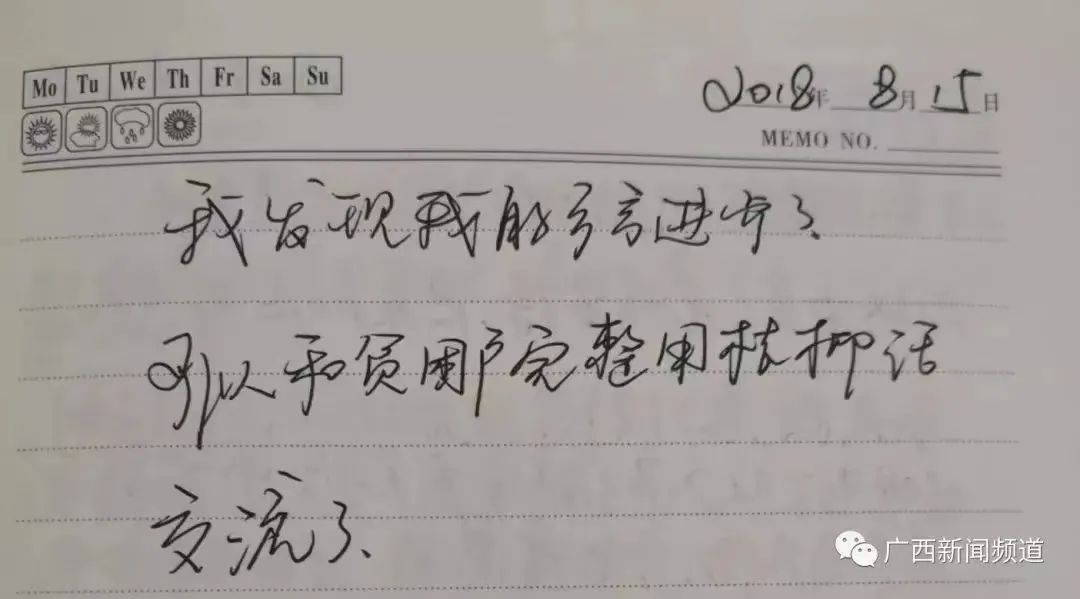 Mo Tu We Th Fr Sa Su
2018年 8月 15日
MEMO NO.
我发现我的方言进步了、
可以和贫困户完整用桂柳话
交流了、
广西新闻频道